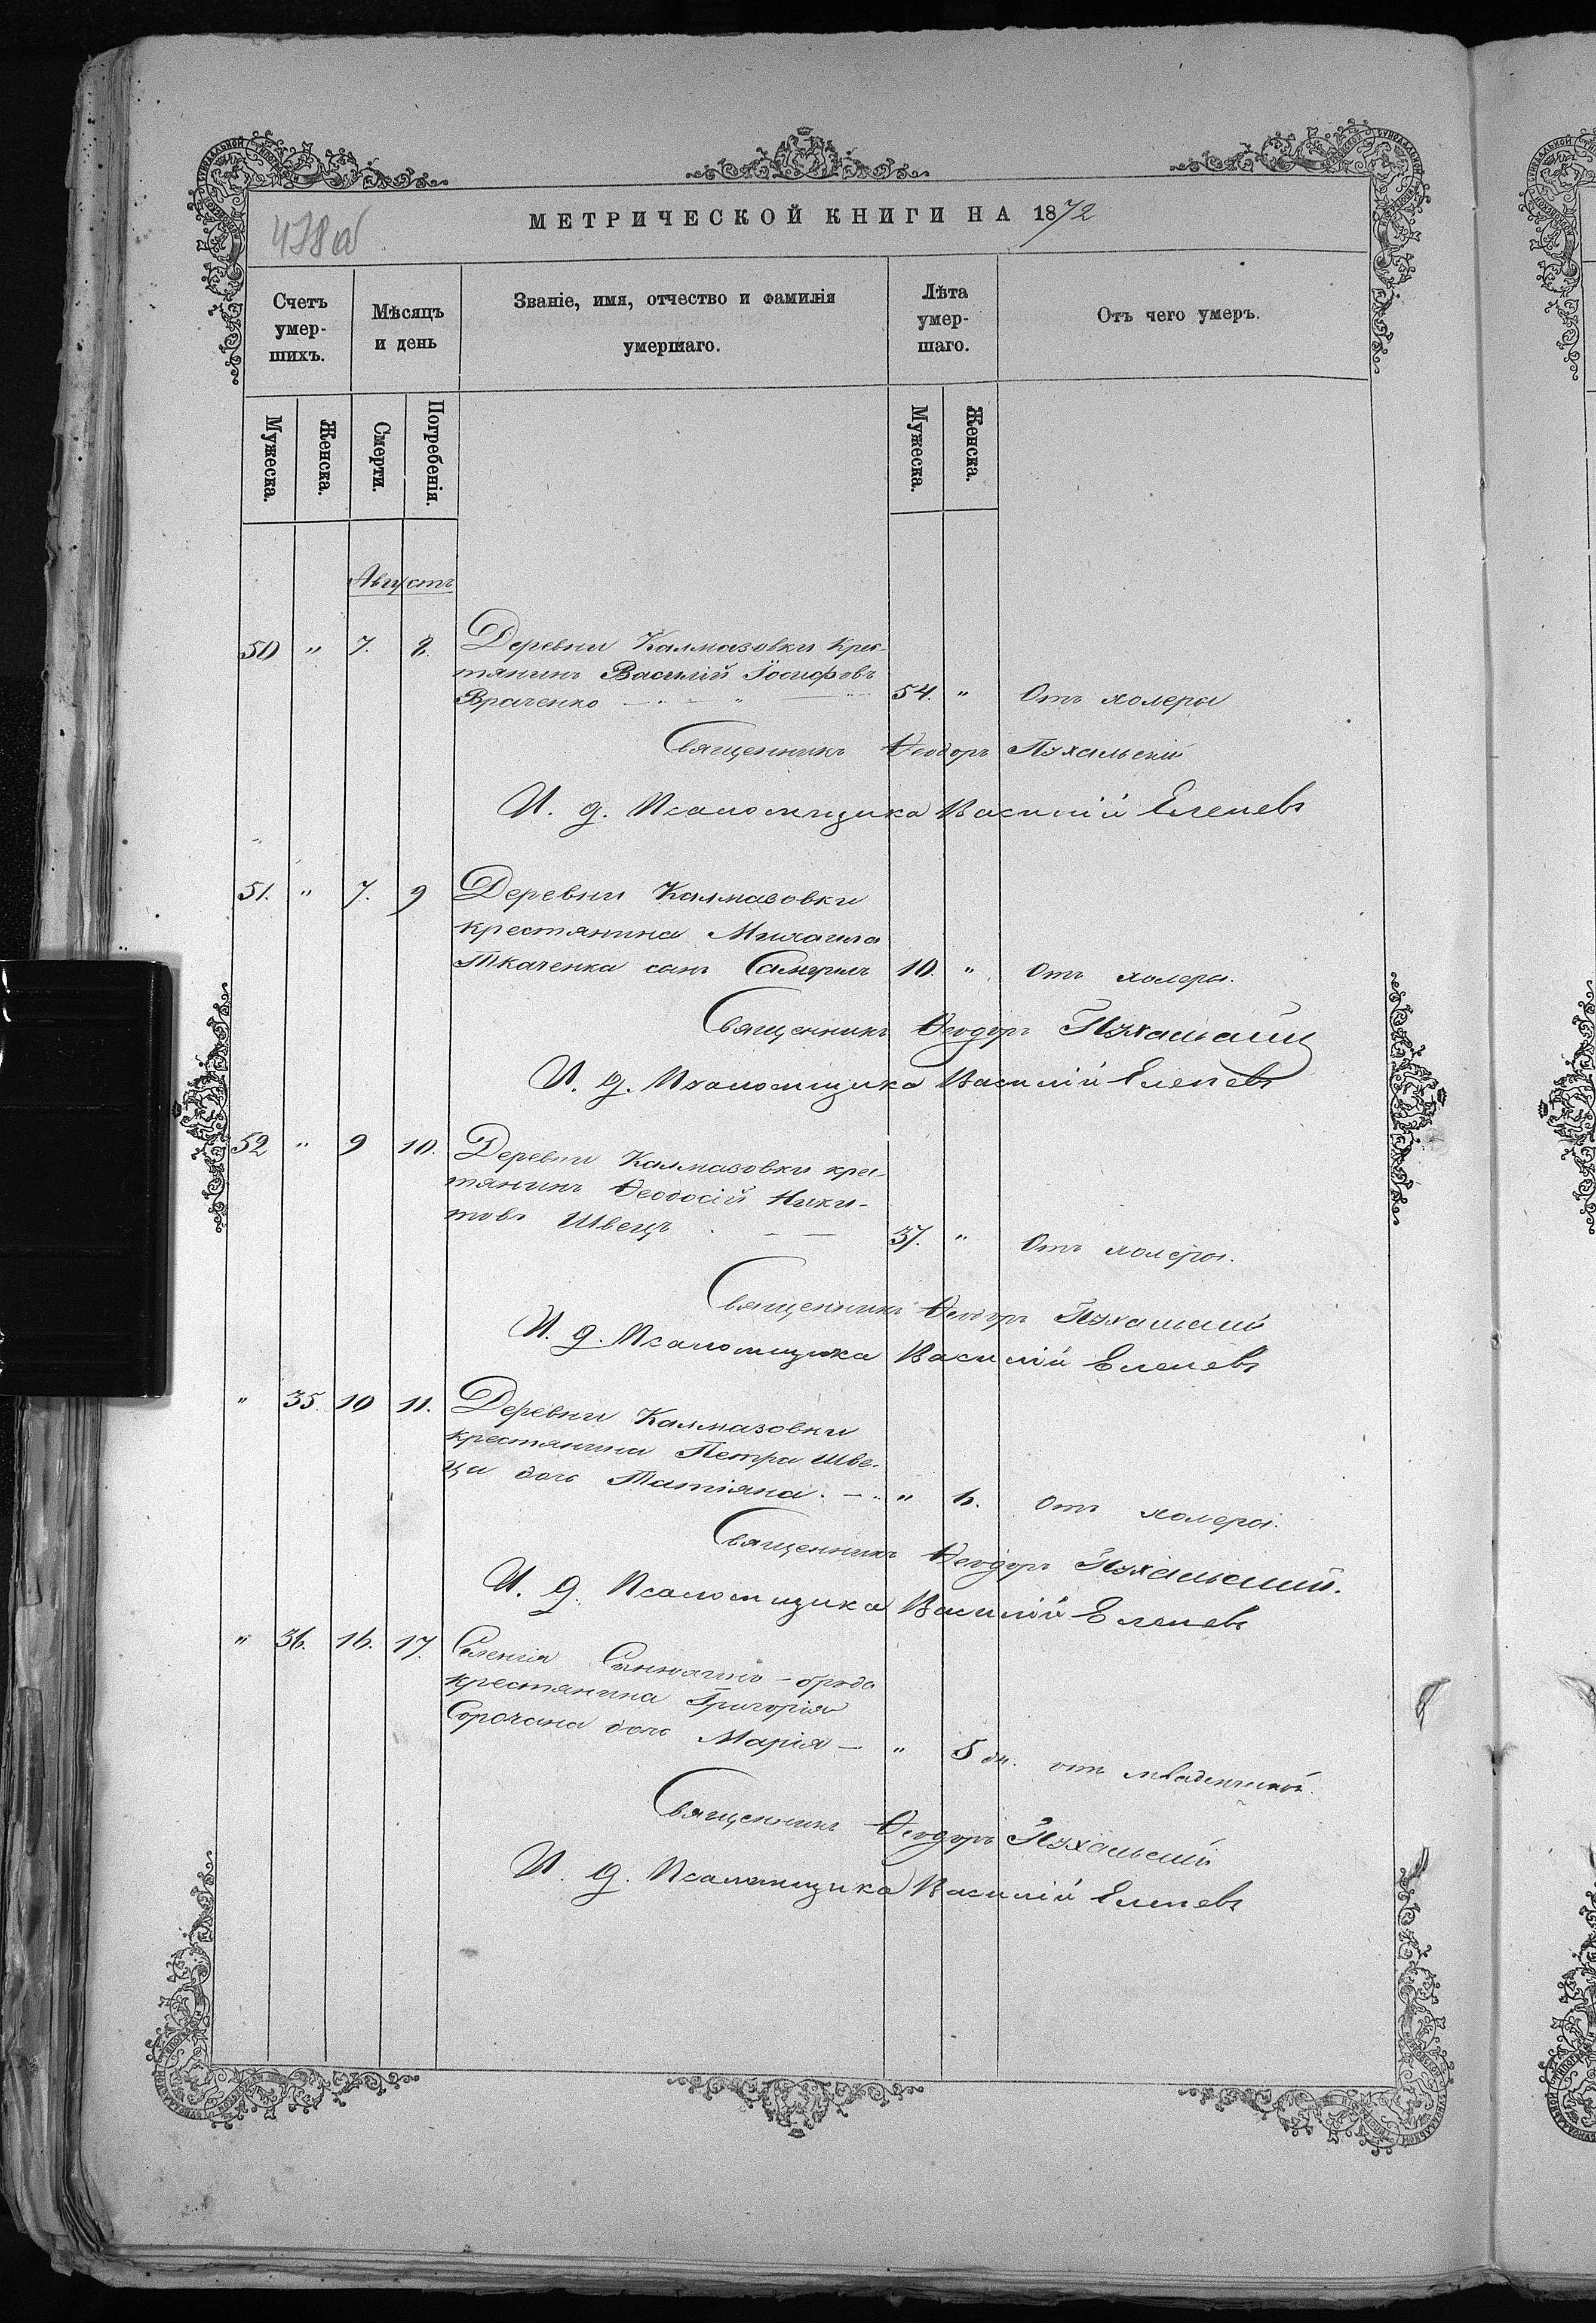 МЕТРИЧЕСКОЙ КНИГИ НА 1872
478об
Счетъ умер-шихъ.
Мѣсяцъ и день
Званіе, имя, отчество и фамилія умершаго.
Лѣта умер-шаго.
Отъ чего умеръ.
Мужеска.
Женска.
Смерти.
Погребенія.
Мужеска.
Женска.
Августъ
50 " 7. 8. Деревни Калмазовки крес-
тянинъ Василій Іосифовъ
Враченко 54. " Отъ холеры
Священникъ Ѳеодоръ Пухальскій
И. д. Псаломщика Василій Еленевъ
51. " 7. 9 Деревни Калмазовки
крестянина Михаила
Ткаченка сынъ 10. " Отъ холеры.
Священникъ Ѳеодоръ Пухальскій
И. д. Псаломщика Василій Еленевъ
52 " 9 10. Деревни Калмазовки крес-
тянинъ Ѳеодосій Ники-
товъ Швецъ 37. " Отъ холеры.
Священникъ Ѳеодоръ Пухальскій
И. д. Псаломщика Василій Еленевъ
" 35. 10 11. Деревни Калмазовки
крестянина Петра Шве-
ца дочь Татіяна. " 6. Отъ холеры.
Священникъ Ѳеодоръ Пухальский.
И. д. Псаломщика Василій Еленевъ
" 36. 16. 17. Селенія Синюхинъ-брода
крестянина Григорія
Сорочана дочь Марія — " 5 дн. отъ младенческой.
Священникъ Ѳеодоръ Пухальскій
И. д. Псаломщика Василій Еленевъ